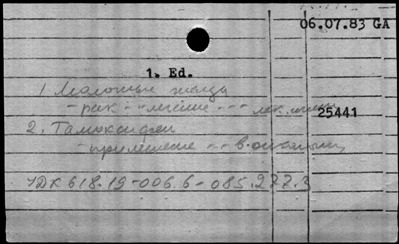 06.07.83 GA
1. Ed.
1. Молочные железы
- рак - лечение -- лек.
25441
2. Тамоксифен
- применение -- в онкологии
УДК 618.19-006.6-085.277.3